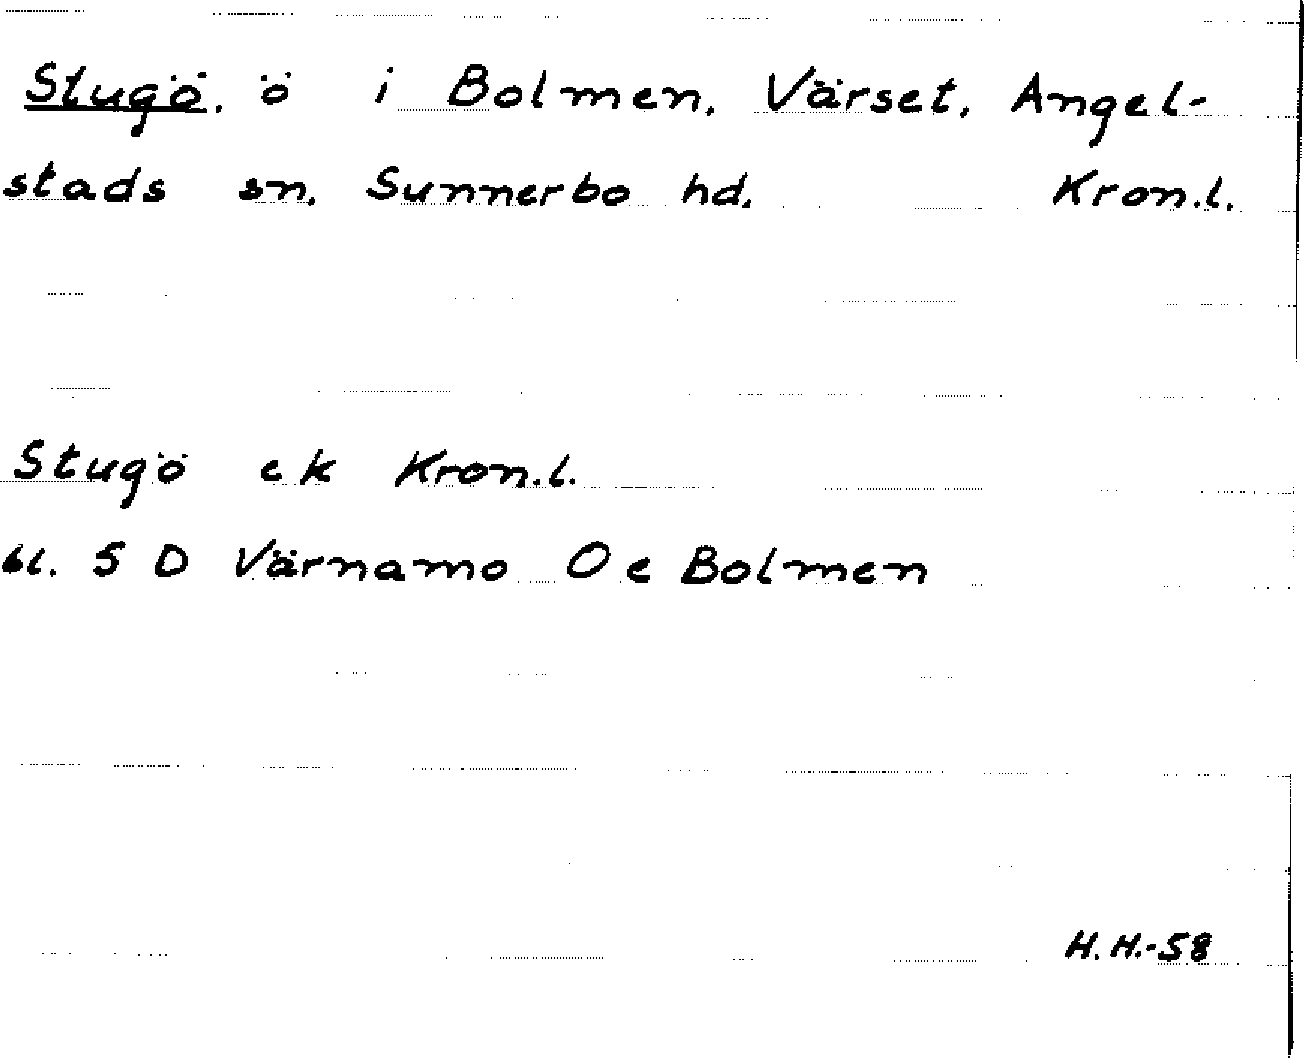 Stugö. ö i Bolmen, Värset, Angel-
stads sn, Sunnerbo hd, Kron.l.
Stugö ek Kron.l.
bl. 5 D Värnamo O e Bolmen
H.H.-58